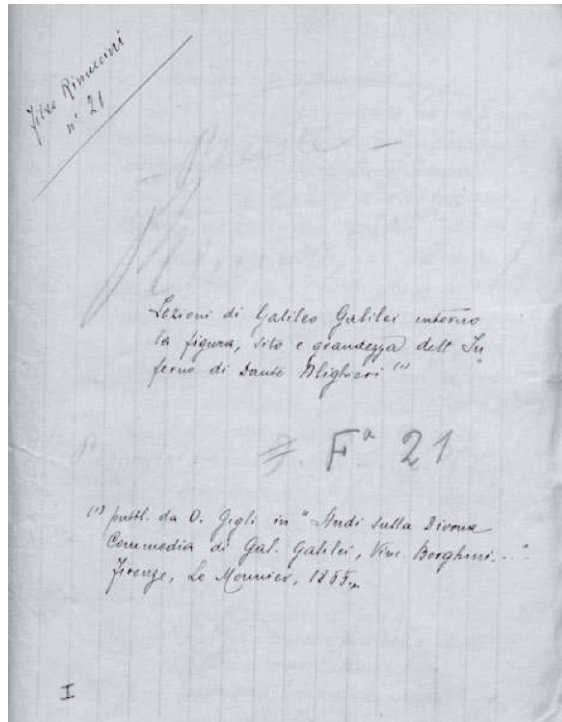 Filza Rinuccini
n° 21
Lezioni di Galileo Galilei intorno
la figura, sito e grandezza dell' In
ferno di Dante Alighieri (1)
F.a 21
(1) pubbl. da O. Gigli in "Studi sulla Divina
Commedia di Gal. Galilei, Vinc. Borghini...."
Firenze, Le Monnier, 1855.
I